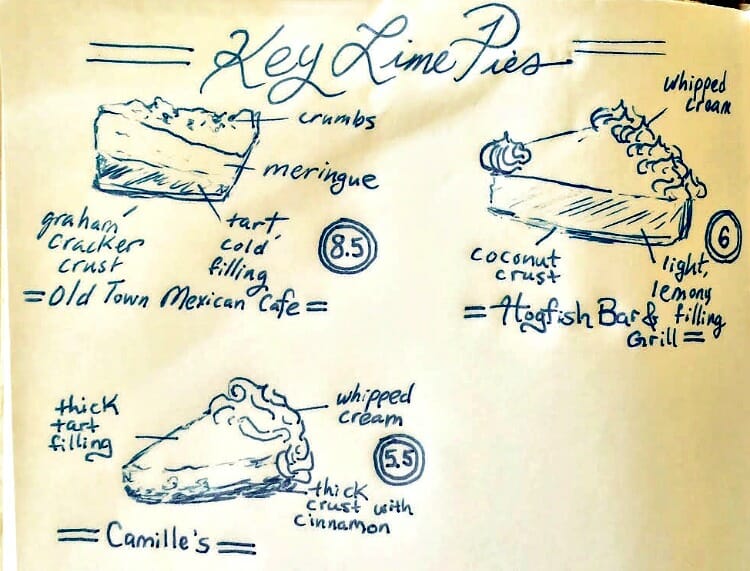 Key Lime Pies
crumbs
meringue
graham
cracker
crust
tart
cold
filling
8.5
=Old Town Mexican Cafe=
whipped
cream
coconut
crust
light,
lemony
filling
6
=Hogfish Bar &
Grill=
thick
tart
filling
whipped
cream
5.5
thick
crust with
cinnamon
=Camille's=